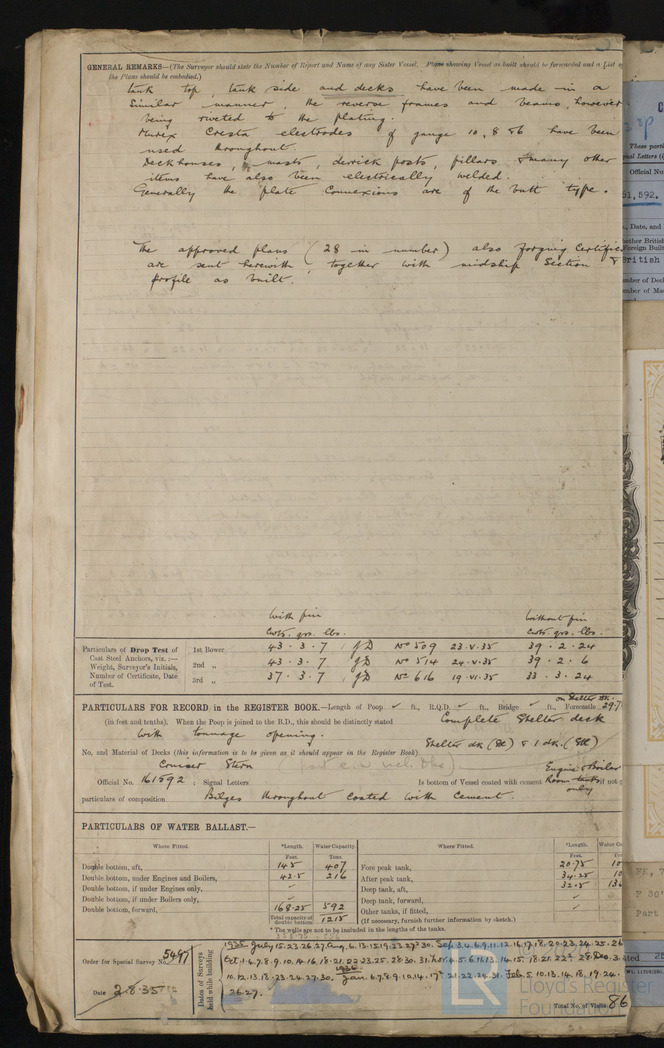 GENERAL REMARKS—(The Surveyor should state the Number of Report and Name of any Sister Vessel. Plans showing Vessel as built should be forwarded and a List
the Plans should be embodied.)
tank top, tank side and decks have been made in a
similar manner, the reverse frames and beams, however
being riveted to the plating.
Murex Cresta electrodes of gauge 10, 8 & 6 have been
used throughout.
Deckhouses, masts, derrick posts, pillars & many other
items have also been electrically welded.
Generally the plate connexions are of the butt type.
The approved plans (28 in number) also forging Certific
are sent herewith, together with midship section &
profile as built.
With pin Without pin
Cwts. qrs. lbs. Cwts. qrs. lbs.
Particulars of Drop Test of Cast Steel Anchors, viz.:— Weight, Surveyor's Initials, Number of Certificate, Date of Test.
1st Bower 43 . 3 . 7 JD No 509 23.V.35 39 . 2 . 24
2nd „ 43 . 3 . 7 JD No 514 24.V.35 39 . 2 . 6
3rd „ 37 . 3 . 7 JD No 616 19.VI.35 33 . 3 . 24
on Shelter dk.
PARTICULARS FOR RECORD in the REGISTER BOOK.—Length of Poop ✓ ft., R.Q.D. ✓ ft., Bridge ✓ ft., Forecastle 29.7
(in feet and tenths). When the Poop is joined to the B.D., this should be distinctly stated Complete Shelter deck
with tonnage opening.
No. and Material of Decks (this information is to be given as it should appear in the Register Book) Shelter dk (Stl) & 1 dk. (Stl)
Cruiser Stern
Official No. 161592 ; Signal Letters Is bottom of Vessel coated with cement Engine & Boiler Room tanks only if not
particulars of composition Bilges throughout coated with cement.
PARTICULARS OF WATER BALLAST.—
Where Fitted. *Length. Water Capacity. Where Fitted. *Length. Water Ca
Feet. Tons. Feet.
Double bottom, aft, 145 407 Fore peak tank, 20.75 10
Double bottom, under Engines and Boilers, 42.5 216 After peak tank, 34.25 10
Double bottom, if under Engines only, ✓ Deep tank, aft, 32.5 13
Double bottom, if under Boilers only, ✓ Deep tank, forward, ✓
Double bottom, forward, 168.25 592 Other tanks, if fitted, ✓
Total capacity of double bottom 1215 (If necessary, furnish further information by sketch.)
* The wells are not to be included in the lengths of the tanks.
Order for Special Survey No. 5497
Date 2.8.35
Dates of Surveys held while building
1935 July 15.23.26.27. Aug. 6.13.15.19.23.27.30. Sep. 3.4.6.9.11.12.16.17.18.20.23.24.25.26
Oct. 1.4.7.8.9.10.14.16.18.21.22.23.25.28.30.31. Nov. 4.5.6.11.13.14.15.18.21.22.28. Dec. 3.
10.12.13.18.23.24.27.30. 1936 Jan. 6.7.8.9.10.14.17.21.22.24.31. Feb. 5.10.13.14.18.19.24.
26.27.
Total No. of Visits 86
Lloyd's Register
Foundation
These parti
nal Letters (
Official Nu
61,592.
, Date, and
ether British
Foreign Buil
British
mber of Dec
mber of Ma
F 30'
Part